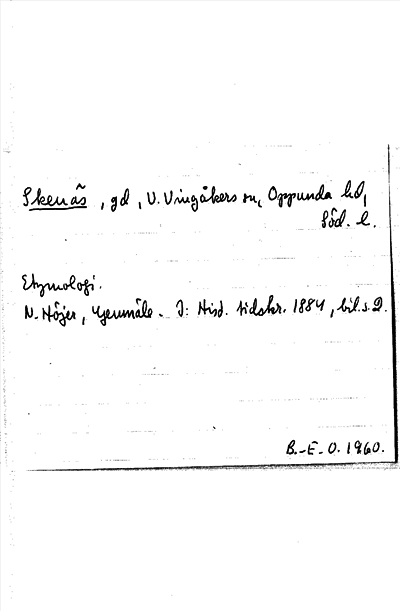 Skenäs, gd, V. Vingåkers sn, Oppunda hd,
Söd. l.
Etymologi.
N. Höjer, Genmäle. I: Hist. tidskr. 1884, bil. s. 2.
B.-E. O. 1960.